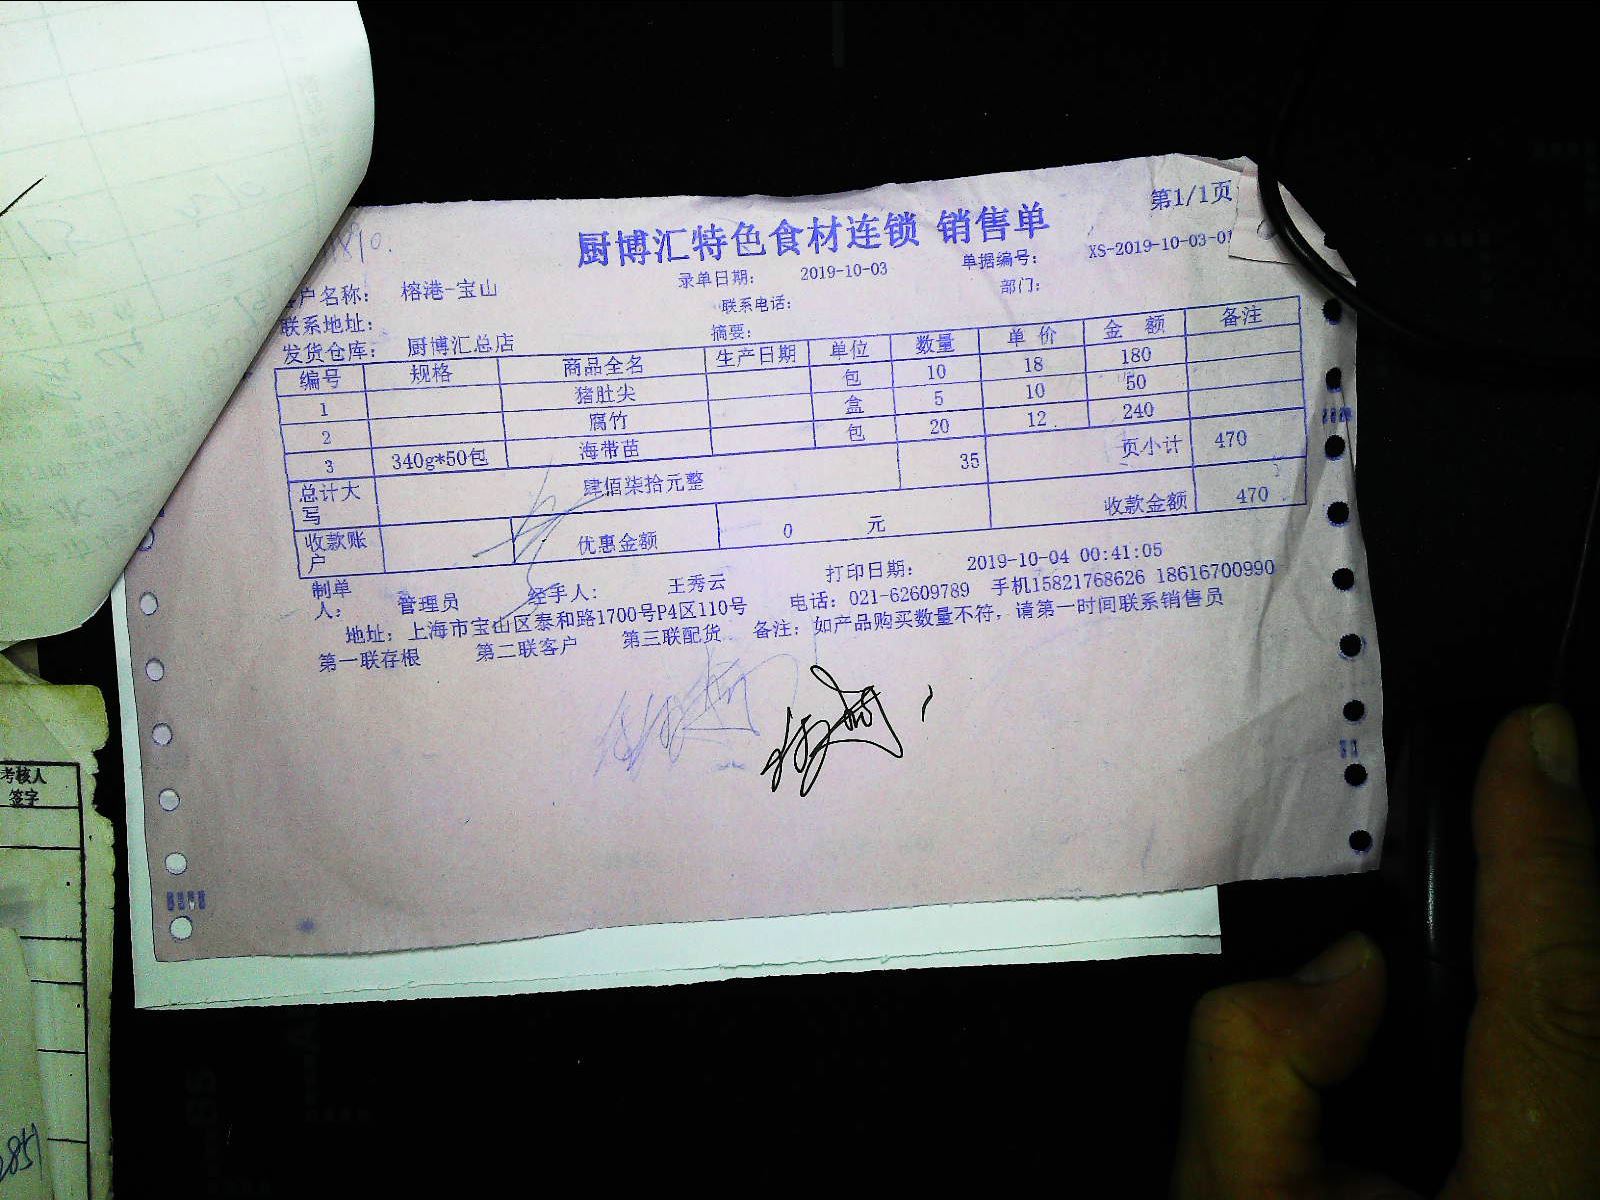 第1/1页
厨博汇特色食材连锁 销售单
户名称: 榕港-宝山 录单日期: 2019-10-03 单据编号: XS-2019-10-03-01
联系地址: 联系电话: 部门:
发货仓库: 厨博汇总店 摘要:
编号 规格 商品全名 生产日期 单位 数量 单价 金额 备注
1 猪肚尖 包 10 18 180
2 腐竹 盒 5 10 50
3 340g*50包 海带苗 包 20 12 240
总计大写 肆佰柒拾元整 35 页小计 470
收款账户 优惠金额 0 元 收款金额 470
制单人: 管理员 经手人: 王秀云 打印日期: 2019-10-04 00:41:05
地址: 上海市宝山区泰和路1700号P4区110号 电话: 021-62609789 手机15821768626 18616700990
第一联存根 第二联客户 第三联配货 备注: 如产品购买数量不符,请第一时间联系销售员
考核人
签字